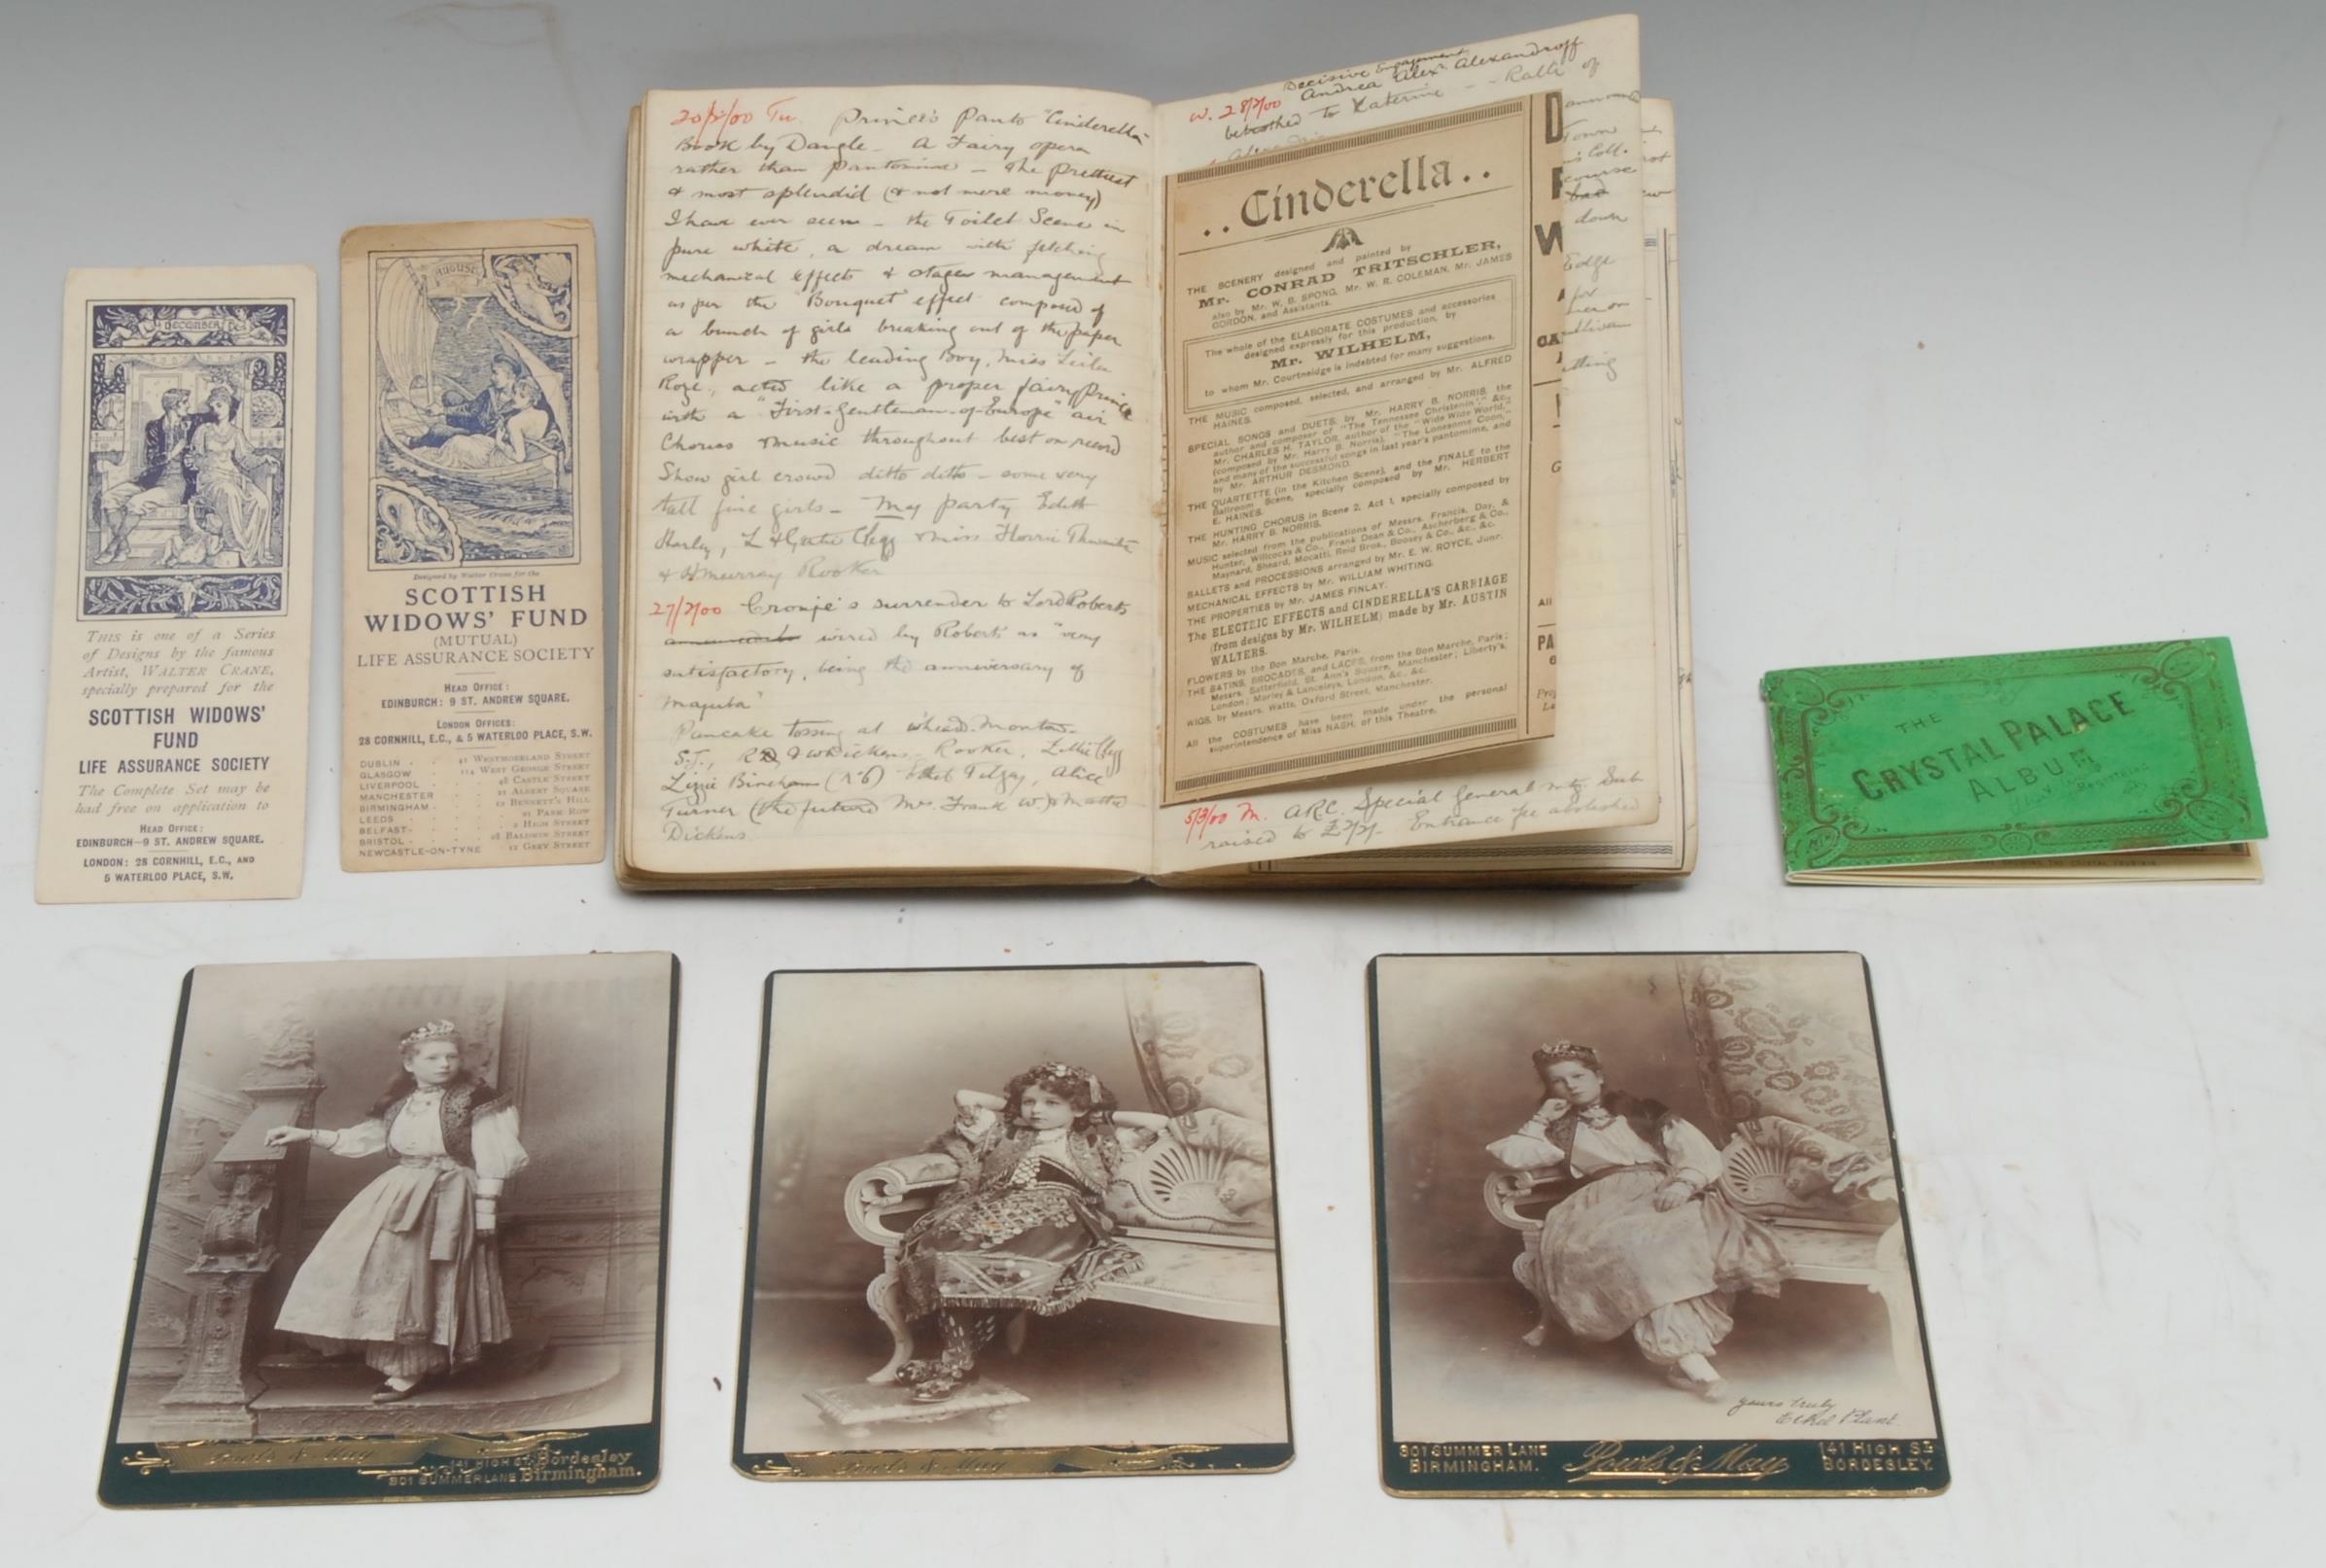 DECEMBER
THIS is one of a Series
of Designs by the famous
Artist, WALTER CRANE,
specially prepared for the
SCOTTISH WIDOWS'
FUND
LIFE ASSURANCE SOCIETY
The Complete Set may be
had free on application to
HEAD OFFICE:
EDINBURGH—9 ST. ANDREW SQUARE.
LONDON: 28 CORNHILL, E.C., AND
5 WATERLOO PLACE, S.W.
AUGUST
Designed by Walter Crane for the
SCOTTISH
WIDOWS' FUND
(MUTUAL)
LIFE ASSURANCE SOCIETY
HEAD OFFICE:
EDINBURGH: 9 ST. ANDREW SQUARE.
LONDON OFFICES:
28 CORNHILL, E.C., & 5 WATERLOO PLACE, S.W.
DUBLIN . 41 WESTMORELAND STREET
GLASGOW . 114 WEST GEORGE STREET
LIVERPOOL . 48 CASTLE STREET
MANCHESTER . 21 ALBERT SQUARE
BIRMINGHAM . 12 BENNETT'S HILL
LEEDS . 21 PARK ROW
BELFAST . 2 HIGH STREET
BRISTOL . 28 BALDWIN STREET
NEWCASTLE-ON-TYNE 12 GREY STREET
20/2/00 Tu. Prince's Panto "Cinderella"
Book by Dangle - A Fairy opera
rather than pantomime - the prettiest
& most splendid (& not mere money)
I have ever seen - the Toilet Scene in
pure white, a dream with fetching
mechanical effects & stage management
as per the "Bouquet" effect composed of
a bunch of girls breaking out of the paper
wrapper - the leading Boy, Miss Leila
Roze, acted like a proper fairy Prince
with a "First-Gentleman-of-Europe" air
Chorus music throughout best on record
Show girl crowd ditto ditto - some very
tall fine girls - My party Edith
Harley, L & Gertie Clegg Miss Florrie
& Murray Rooker
27/2/00 Cronje's surrender to Lord Roberts
wired by Roberts as "very
satisfactory, being the anniversary of
Majuba"
Pancake tossing at
Rooker, Lottie Clegg
Lizzie Bincham Alice
Turner (the future Mrs. Frank W.)
Dickens
Decisive Engagement
W. 28/2/00 Andrea Alexr Alexandroff
betrothed to Katerine - - Ralli of
Cinderella
THE SCENERY designed and painted by
Mr. CONRAD TRITSCHLER,
also by Mr. W. B. SPONG, Mr. W. R. COLEMAN, Mr. JAMES
GORDON, and Assistants.
The whole of the ELABORATE COSTUMES and accessories
designed expressly for this production, by
Mr. WILHELM,
to whom Mr. Courtneidge is indebted for many suggestions.
THE MUSIC composed, selected, and arranged by Mr. ALFRED
HAINES.
SPECIAL SONGS and DUETS, by Mr. HARRY B. NORRIS, the
author and composer of "The Tennessee Christenin'," &c.
Mr. CHARLES H. TAYLOR, author of the "Wide Wide World,"
(composed by Mr. Harry B. Norris), "The Lonesome Coon,"
and many of the successful songs in last year's pantomime, and
by Mr. ARTHUR DESMOND.
THE QUARTETTE (in the Kitchen Scene), and the FINALE to the
Ballroom Scene, specially composed by Mr. HERBERT
E. HAINES.
THE HUNTING CHORUS in Scene 2, Act 1, specially composed by
Mr. HARRY B. NORRIS.
MUSIC selected from the publications of Messrs. Francis, Day, &
Hunter, Willcocks & Co., Frank Dean & Co., Ascherberg & Co.,
Maynard, Sheard, Mocatti, Reid Bros., Boosey & Co., &c., &c.
BALLETS and PROCESSIONS arranged by Mr. E. W. ROYCE, Junr.
MECHANICAL EFFECTS by Mr. WILLIAM WHITING.
THE PROPERTIES by Mr. JAMES FINLAY.
The ELECTRIC EFFECTS and CINDERELLA'S CARRIAGE
(from designs by Mr. WILHELM) made by Mr. AUSTIN
WALTERS.
FLOWERS by the Bon Marche, Paris.
THE SATINS, BROCADES, and LACES, from the Bon Marche, Paris;
Messrs. Satterfield, St. Ann's Square, Manchester; Liberty's,
London; Morley & Lanceleys, London, &c., &c.
WIGS, by Messrs. Watts, Oxford Street, Manchester.
All the COSTUMES have been made under the personal
superintendence of Miss NASH, of this Theatre.
5/3/00 M. ARC. Special General mtg. Sub
raised to £2/2/- Entrance fee abolished
Town
course
down
Edge
for
PA
THE
CRYSTAL PALACE
ALBUM
Powls & May
141 HIGH ST. Bordesley
301 SUMMER LANE Birmingham.
Powls & May
yours truly
Ethel Plant.
301 SUMMER LANE
BIRMINGHAM.
Powls & May
141 HIGH ST.
BORDESLEY.